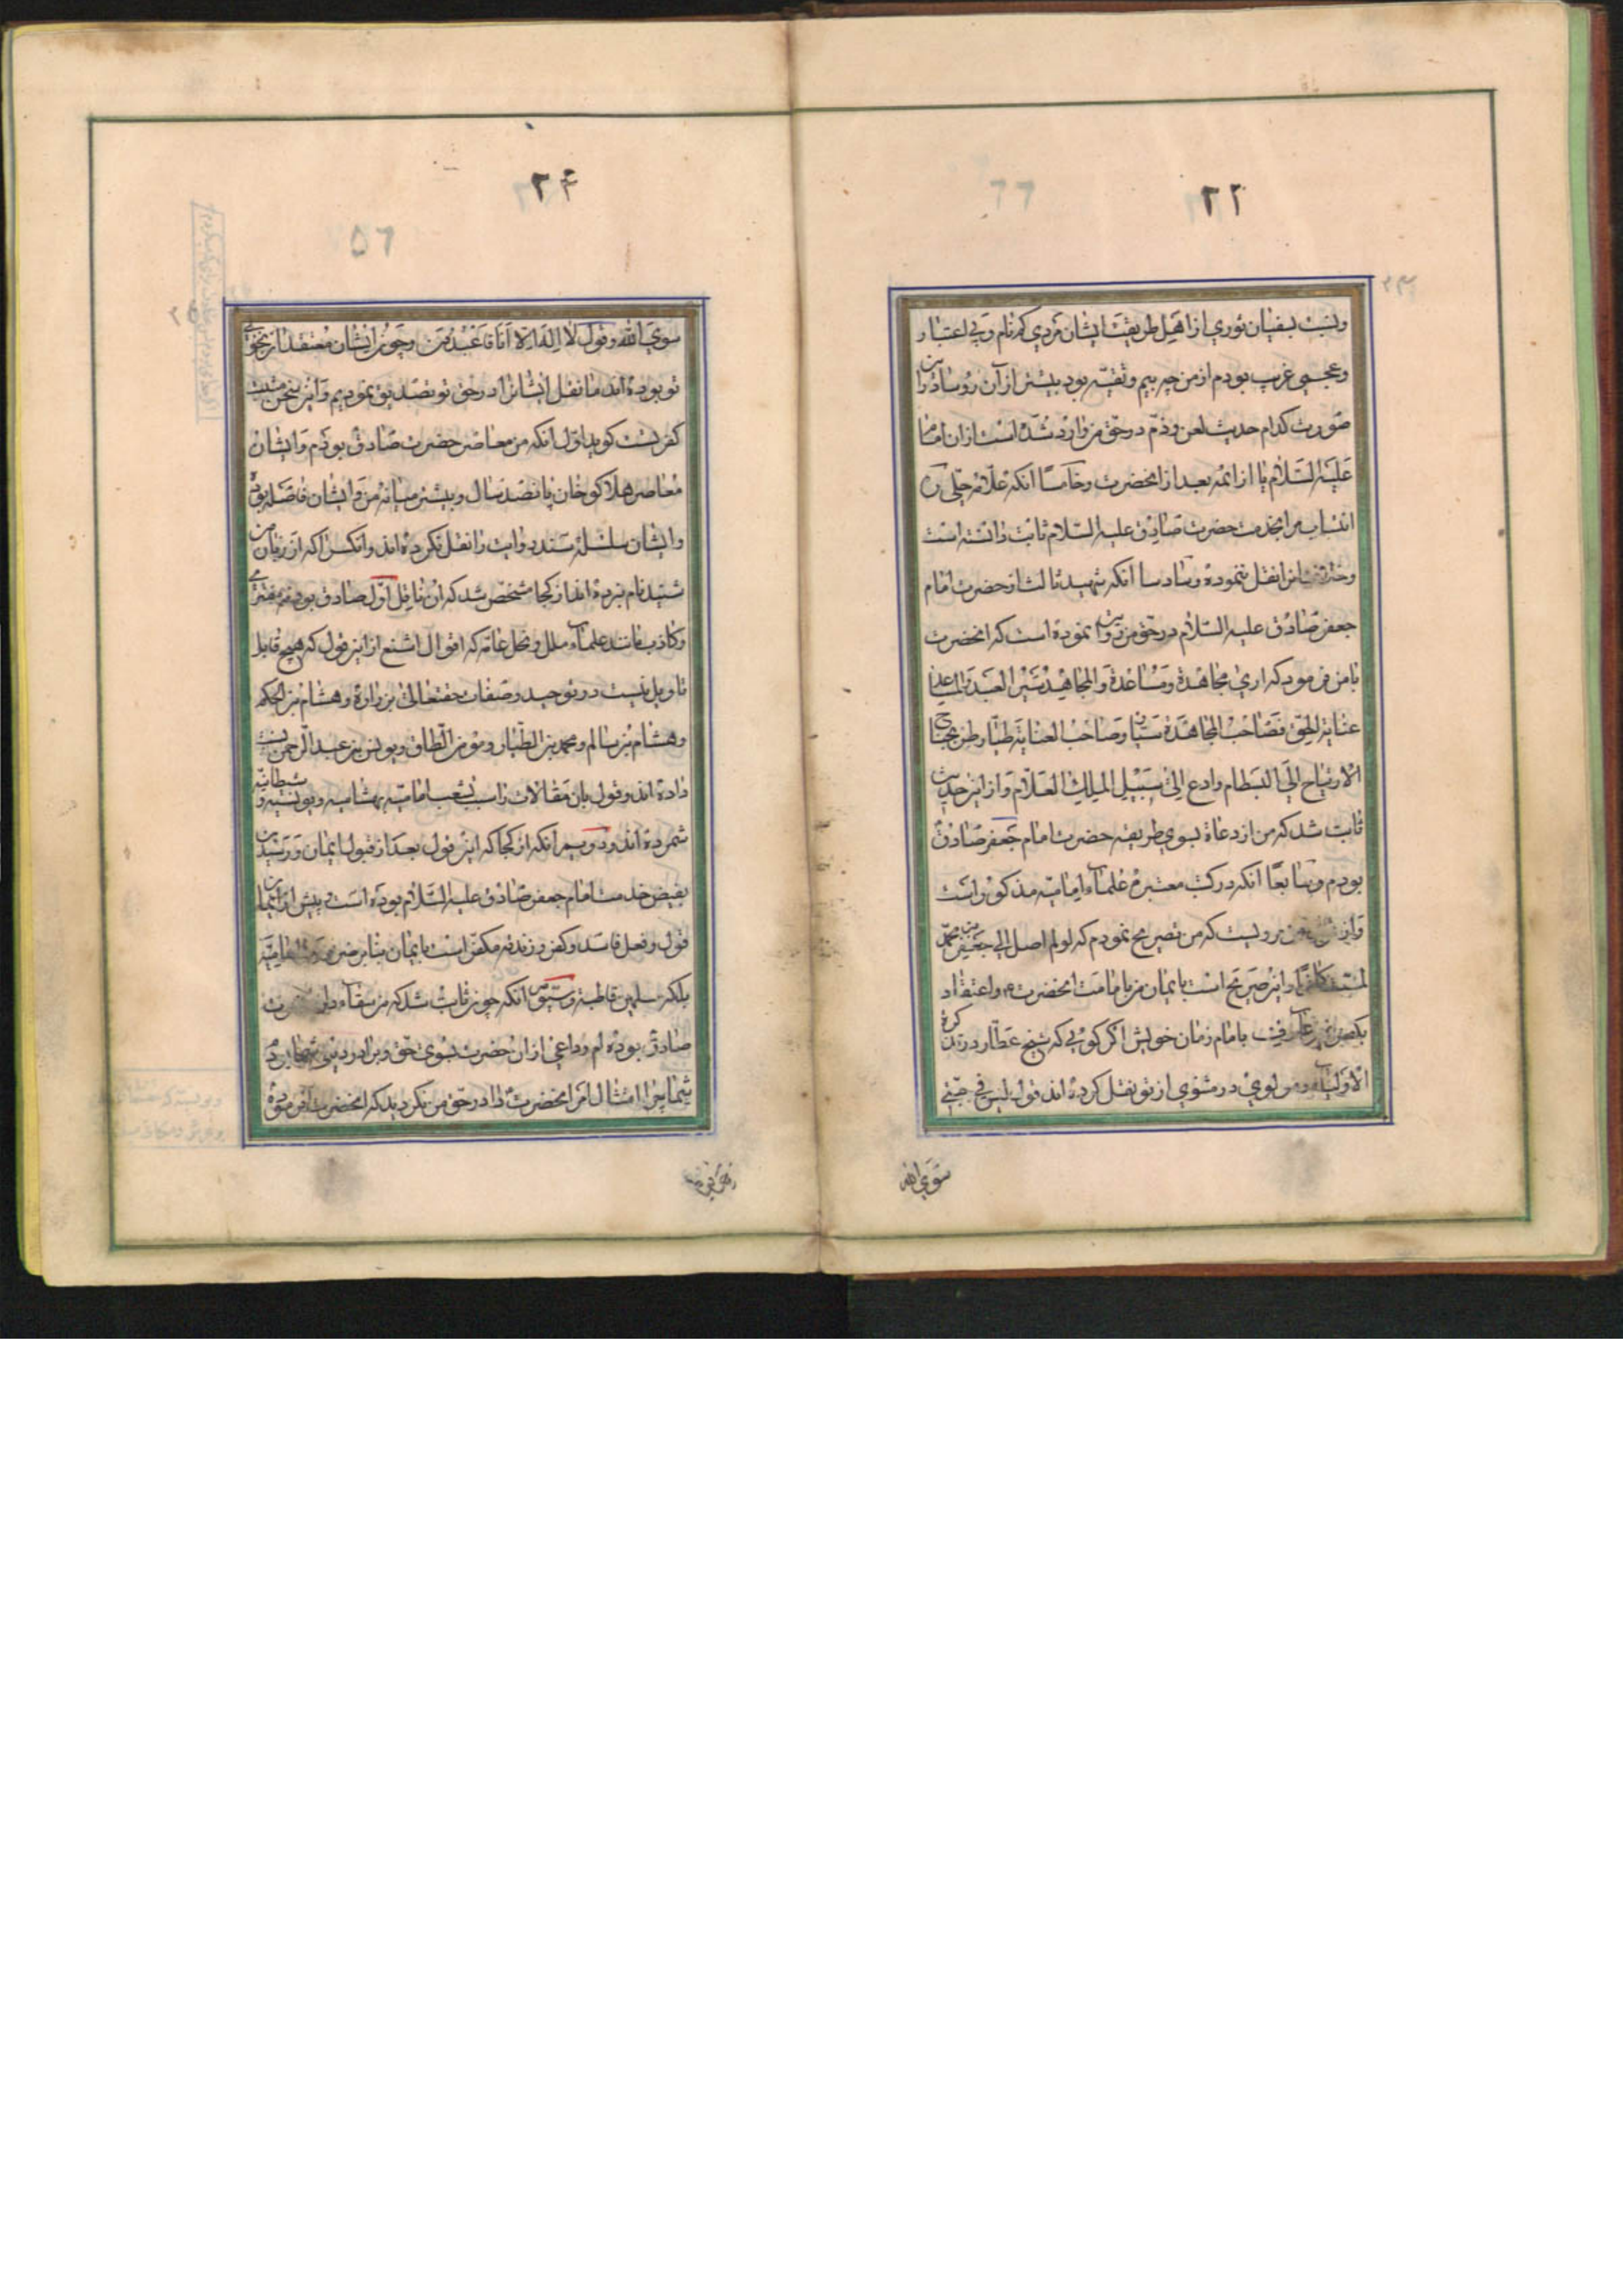 ۲۲
ونسبت بسفیان ثوری از اهل طریقت ایشان مردی کم نام و بی اعتبار و
وعجمی غریب بودم از من چه بیم وتقیه بود بیشتر از آن رؤسا در این
صورت کدام حدیث لعن وذم در حق من وارد شده است از ان امام
علیه السلام یا از ائمه بعد از انحضرت وخامسا انکه علامه حلی
انتساب مرا بخدمت حضرت صادق علیه السلام ثابت دانسته است
نقل ننموده وسادسا انکه شهید ثالث از حضرت امام
جعفر صادق علیه السلام در حق من روایت نموده است که انحضرت
با من فرمود که اری مجاهدة ومساعدة والمجاهد سیر العبد
عنایة الحق فصاحب المجاهدة سیار وصاحب العنایة طیار طر بجناح
الارتیاح الی البسطام وادع الی سبیل الملک العلام واز این حدیث
ثابت شد که من از دعاة بسوی طریقه حضرت امام جعفر صادق
بودم وسابعا انکه در کتب معتبره علماء امامیه مذکور است
که من تصریح نمودم که لو لم اصل الی جعفر بن محمد
لمت کافرا واین صریح است بایمان من بامامت انحضرت واعتقاد
بامام زمان خویش اگر کویی که شیخ عطار در تذکرة
الاولیاء ومولوی در مثنوی از تو نقل کرده اند قول لیس فی جبتی
سوی الله
۲۴
سوی الله وقول لا اله الا انا فاعبدون وچون ایشان معتقد از بخوبی
تو بوده اند ما نقل ایشانرا در حق تو تصدیق نمودیم واین سخن مثبت
کفر تست کوید اول انکه من معاصر حضرت صادق بودم وایشان
معاصر هلاکو خان پانصد سال وبیشتر میانه من وایشان فاصله بوده
وایشان سلسله سند روایت را نقل نکرده اند وانکس را که از زبان من
شنید نام نبرده اند از کجا مشخص شد که ان ناقل اول صادق بوده نه مفتری
وکاذب مانند علماء ملل ونحل عامه که اقوال اشنع از این قول که هیچ قابل
تاویل نیست در توحید وصفات حقتعالی بزراره وهشام بن الحکم
وهشام بن سالم ومحمد بن الطیار ومؤمن الطاق ویونس بن عبدالرحمن نسبت
داده اند وقول بان مقالات را سبب تشعب امامیه بهشامیه ویونسیه وشیطانیه
شمرده اند ودویم انکه از کجا که این قول بعد از قبول ایمان ورسیدن
بفیض خدمت امام جعفر صادق علیه السلام بوده است وپیش از ایمان
قول وفعل فاسد وکفر وزندقه مکفر است بایمان بنابر
بلکه مسلمین قاطبة وسیوم انکه چون ثابت شد که من سقاء
صادق بوده ام وداعی از ان حضرت بسوی حق وبرادر دینی شما بوده
شما چرا امتثال امر انحضرت را در حق من نکردید که انحضرت فرموده